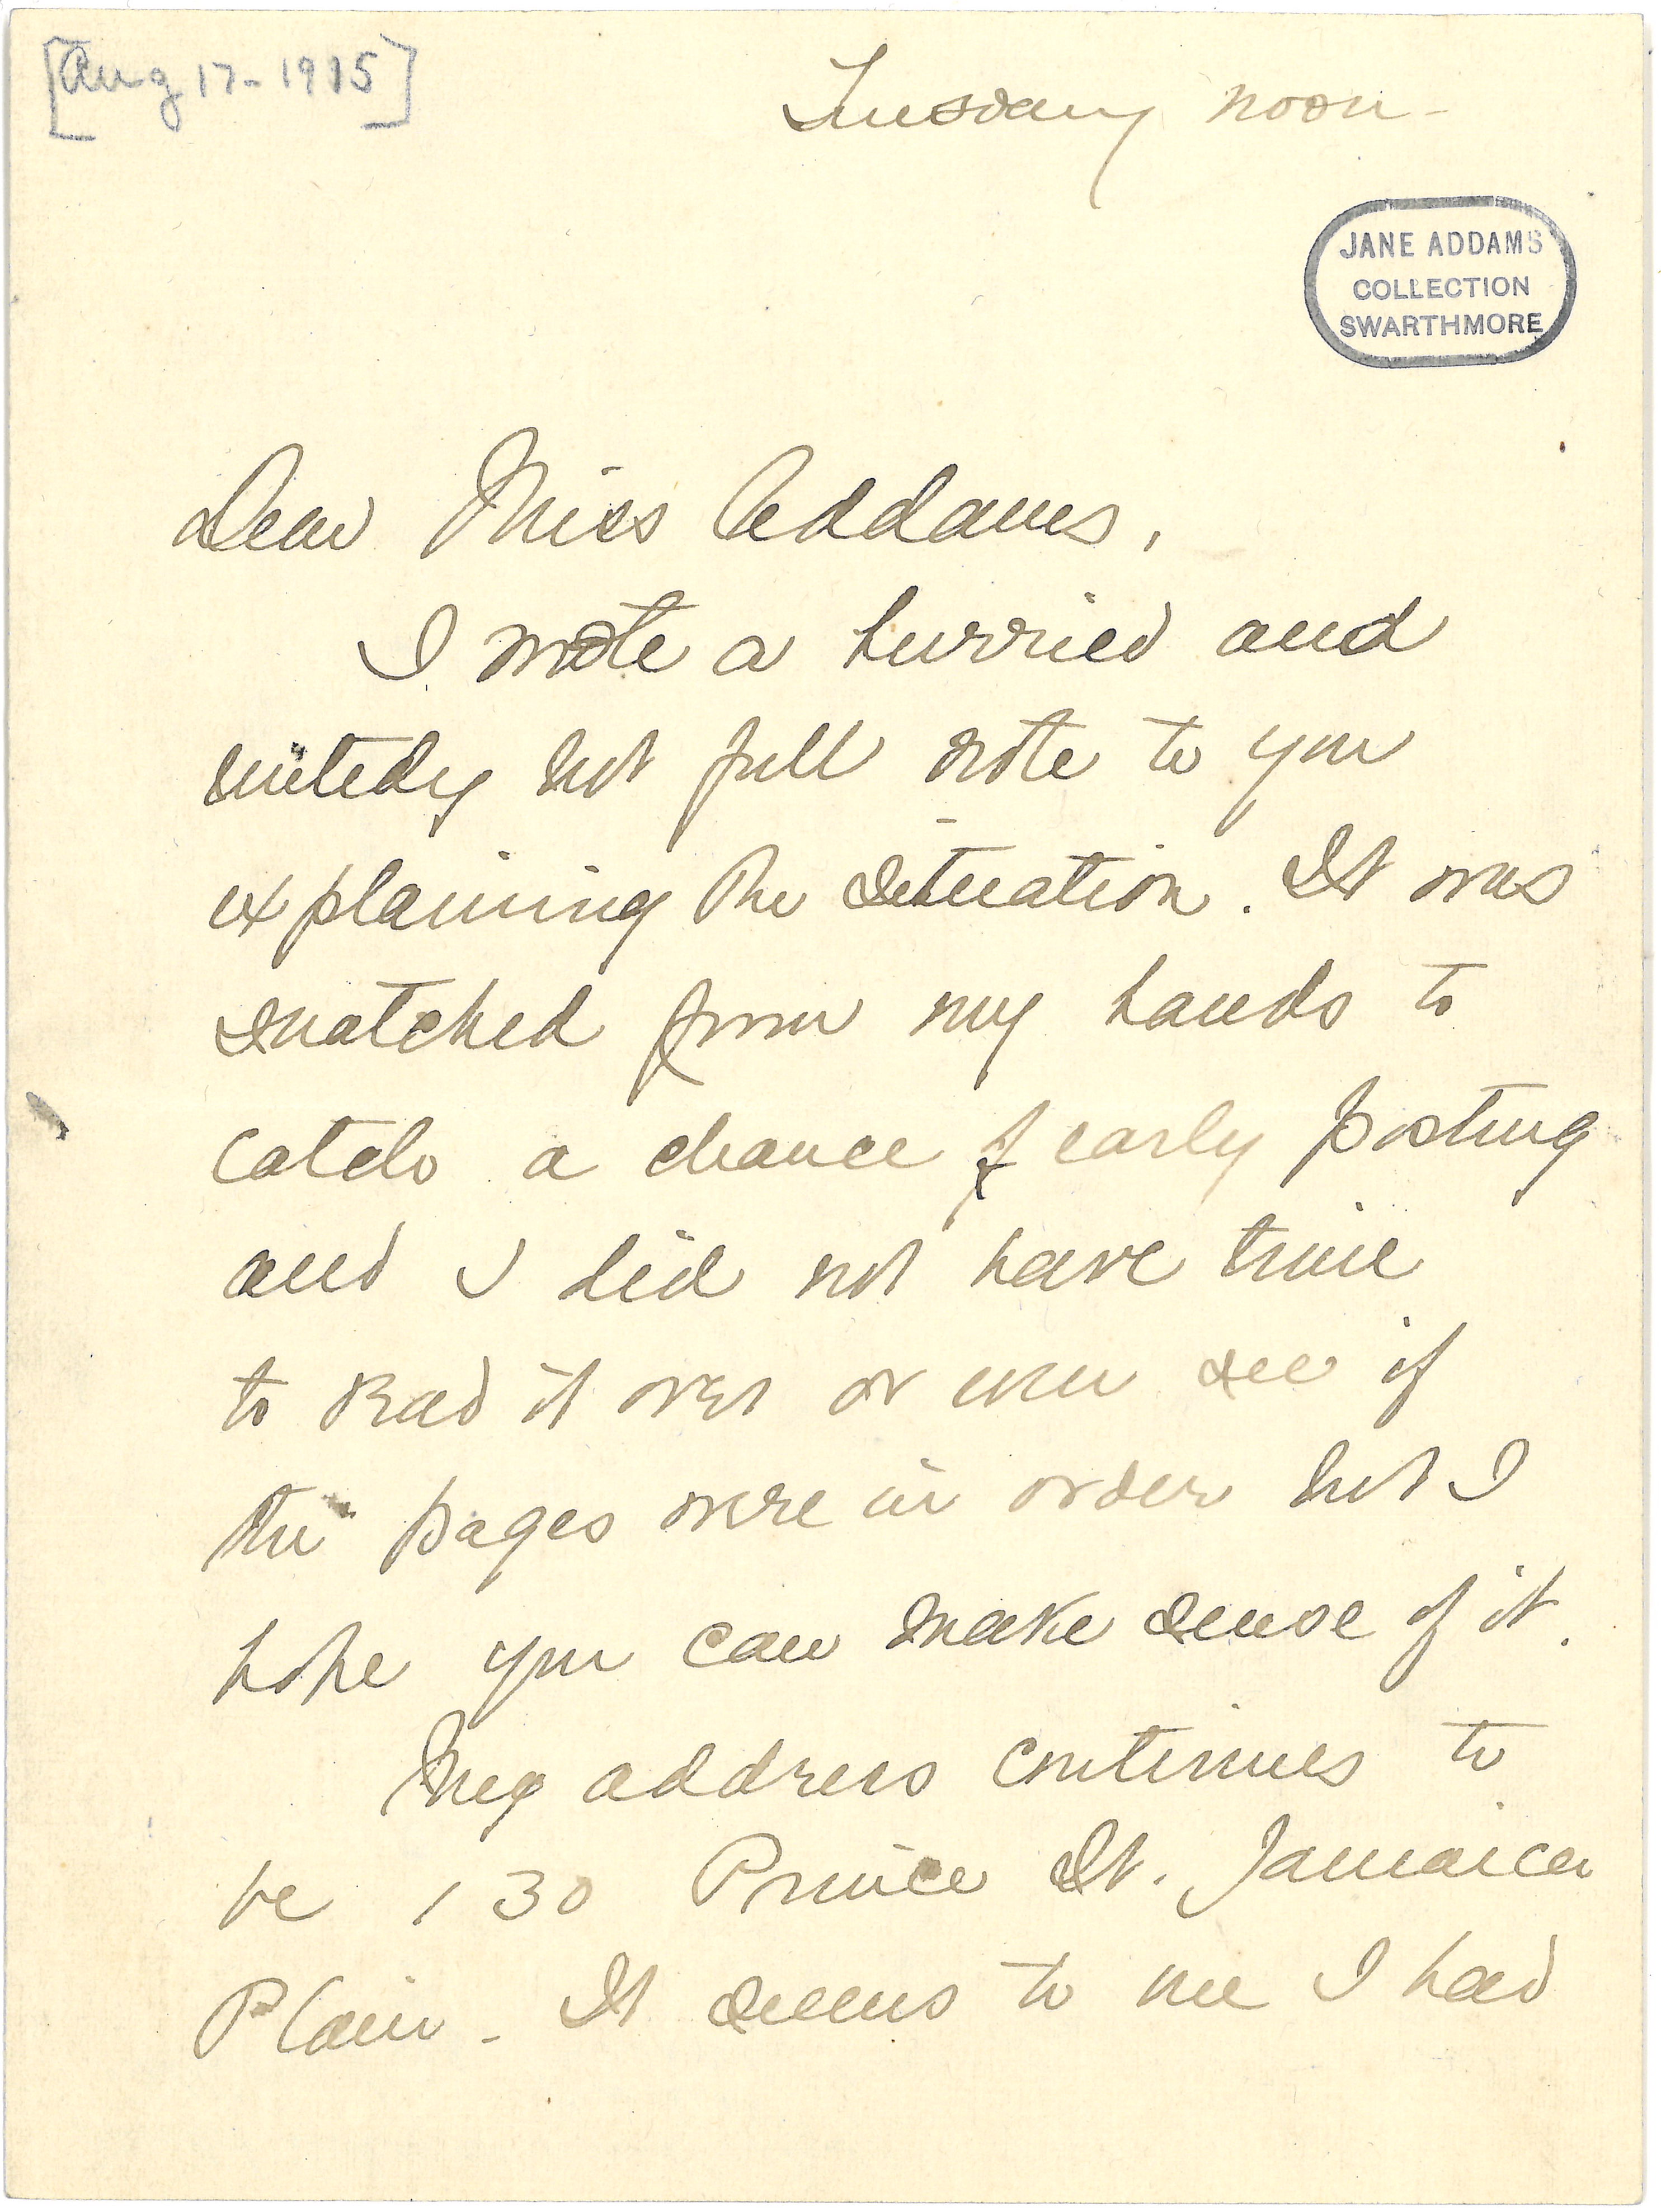 [Aug 17-1915]
Tuesday noon-
JANE ADDAMS
COLLECTION
SWARTHMORE
Dear Miss Addams,
I wrote a hurried and
but full note to you
explaining the situation. It was
snatched from my hands to
catch a chance of early posting
and I did not have time
to read it over or even see if
the pages were in order but I
hope you can make sense of it.
My address continues to
be 130 Prince St. Jamaica
Plain - It seems to me I had